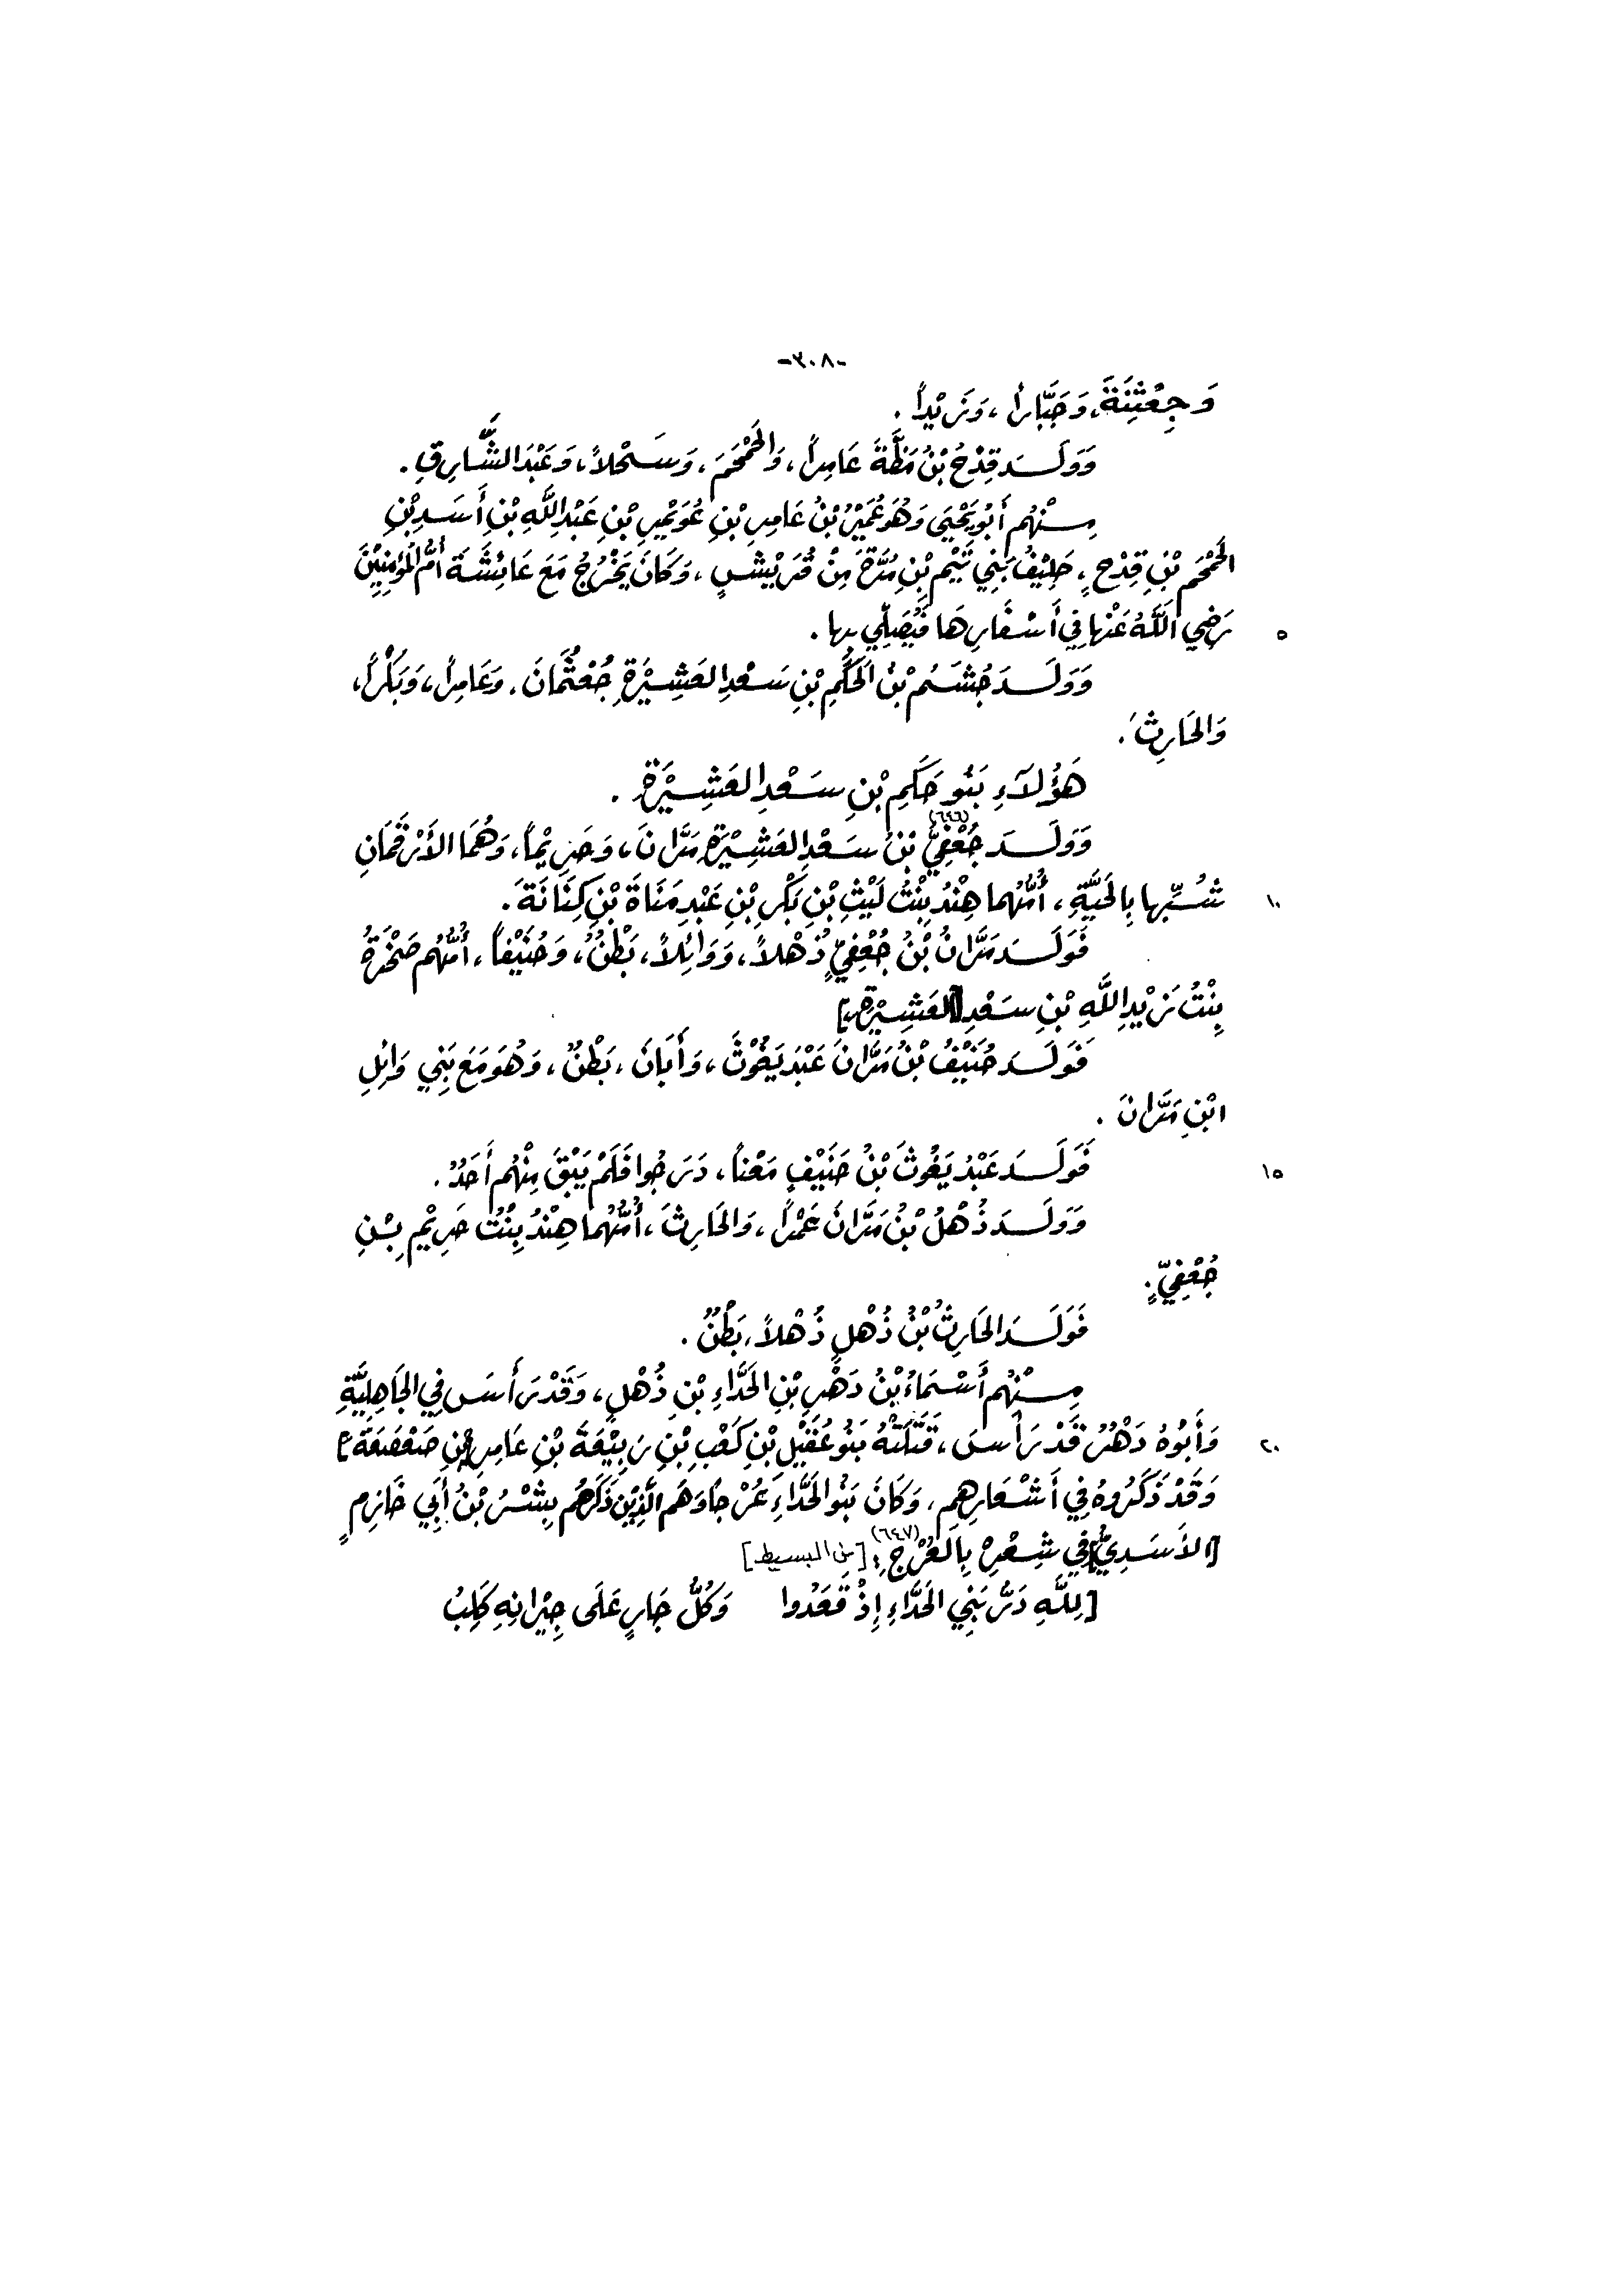 -٣٠٨-
وَجِعْثِنَةَ، وَجَبَّاراً، وَزَيْداً.
وَوَلَدَ قِدْحُ بْنُ مَظَّةَ عَامِراً، وَالحَمْحَمَ، وَسَحْلاً، وَعَبْدَ الشَّارِقِ.
مِنْهُم أَبُو يَحْيَى وَهُوَ عُمَيْرُ بْنُ عَامِرِ بْنِ عُوَيْمِرِ بْنِ عَبْدِ اللَّهِ بْنِ أَسَدِ بْنِ
الحَمْحَمِ بْنِ قِدْحٍ، حَلِيْفُ بَنِي تَيْمِ بْنِ مُرَّةَ مِنْ قُرَيْشٍ، وَكَانَ يَخْرُجُ مَعَ عَائِشَةَ أُمِّ المُؤْمِنِيْنَ
رَضِي اللَّهُ عَنْها فِي أَسْفَارِهَا فَيُصَلِّي بِها. ٥
وَوَلَدَ جُشَمُ بْنُ الحَكَمِ بْنِ سَعْدِ العَشِيْرَةِ جُعْثُمَانَ، وَعَامِراً، وَبَكْراً،
وَالحَارِثَ.
هَؤُلَاءِ بَنُو حَكَمِ بْنِ سَعْدِ العَشِيْرَةِ.
وَوَلَدَ جُعْفِيُّ (٦٤٦) بْنُ سَعْدِ العَشِيْرَةِ مَرَّانَ، وَحَرِيْماً، وَهُمَا الأَرْقَمَانِ
شُبِّها بِالحَيَّةِ، أُمُّهُما هِنْدُ بِنْتُ لَيْثِ بْنِ بَكْرِ بْنِ عَبْدِ مَنَاةَ بْنِ كِنَانَةَ. ١٠
فَوَلَدَ مَرَّانُ بْنُ جُعْفِيٍّ ذُهْلاً، وَوَائِلاً، بَطْنٌ، وَحُنَيْفاً، أُمُّهُم صَخْرَةُ
بِنْتُ زَيْدِ اللَّهِ بْنِ سَعْدِ [العَشِيْرَةِ.]
فَوَلَدَ حُنَيْفُ بْنُ مَرَّانَ عَبْدَ يَغُوْثَ، وَأَبَانَ، بَطْنٌ، وَهُوَ مَعَ بَنِي وَائِلِ
ابْنِ مَرَّانَ.
فَوَلَدَ عَبْدُ يَغُوثَ بْنُ حُنَيْفٍ مَعْناً، دَرَجُوا فَلَمْ يَبْقَ مِنْهُم أَحَدٌ. ١٥
وَوَلَدَ ذُهْلُ بْنُ مَرَّانَ عَمْراً، وَالحَارِثَ، أُمُّهُما هِنْدُ بِنْتُ حَرِيْمِ بْنِ
جُعْفِيٍّ.
فَوَلَدَ الحَارِثُ بْنُ ذُهْلٍ ذُهْلاً، بَطْنٌ.
مِنْهُم أَسْمَاءُ بْنُ دَهْرِ بْنِ الحَدَّاءِ بْنِ ذُهْلٍ، وَقَدْ رَأَسَ فِي الجَاهِلِيَّةِ
وَأَبُوْهُ دَهْرٌ قَدْ رَأَسَ، قَتَلَتْهُ بَنُو عُقَيْلِ بْنِ كَعْبِ بْنِ رَبِيْعَةَ بْنِ عَامِرِ [بْنِ صَعْصَعَةَ] ٢٠
وَقَدْ ذَكَرُوهُ فِي أَشْعَارِهِم، وَكَانَ بَنُو الحَدَّاءِ عُرْجاً وَهُم الَّذِيْنَ ذَكَرَهُم بِشْرُ بْنُ أَبِي خَازِمٍ
[الأَسَدِيُّ] فِي شِعْرِهِ بِالعُرْجِ (٦٤٧): [من البسيط]
[لِلَّهِ دَرُّ بَنِي الحَدَّاءِ إِذْ قَعَدُوا وَكُلُّ جَارٍ عَلَى جِيْرَانِهِ كَلِبُ